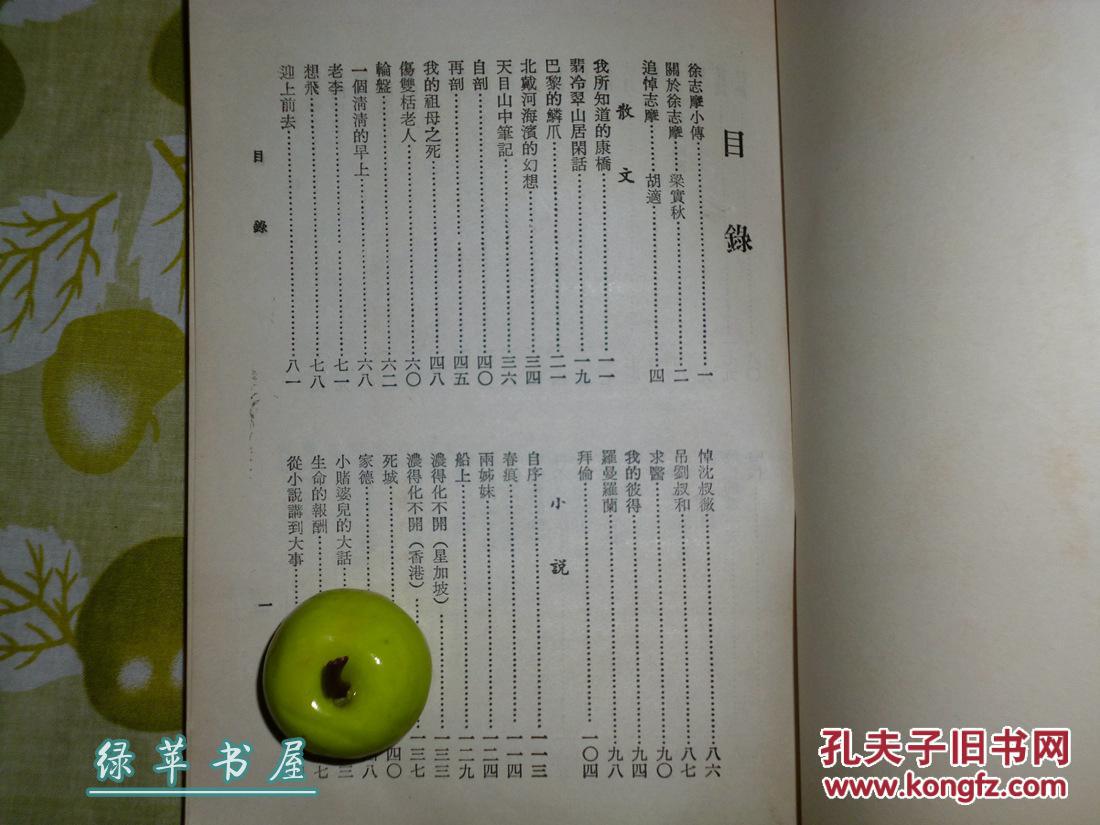 目錄
徐志摩小傳……一
關於徐志摩……梁實秋……二
追悼志摩……胡適……四
散文
我所知道的康橋……一一
翡冷翠山居閑話……一九
巴黎的鱗爪……二一
北戴河海濱的幻想……三四
天目山中筆記……三六
自剖……四〇
再剖……四五
我的祖母之死……四八
傷雙栝老人……六〇
輪盤……六二
一個清清的早上……六八
老李……七一
想飛……七八
迎上前去……八一
悼沈叔薇……八六
吊劉叔和……八七
求醫……九〇
我的彼得……九四
羅曼羅蘭……九八
拜倫……一〇四
小說
自序……一一三
春痕……一一四
兩姊妹……一二四
船上……一二九
濃得化不開（星加坡）……一三三
濃得化不開（香港）……一三七
死城……四〇
家德……八
小賭婆兒的大話……三
生命的報酬……七
從小說講到大事……
目錄
一
绿苹书屋
孔夫子旧书网
www.kongfz.com